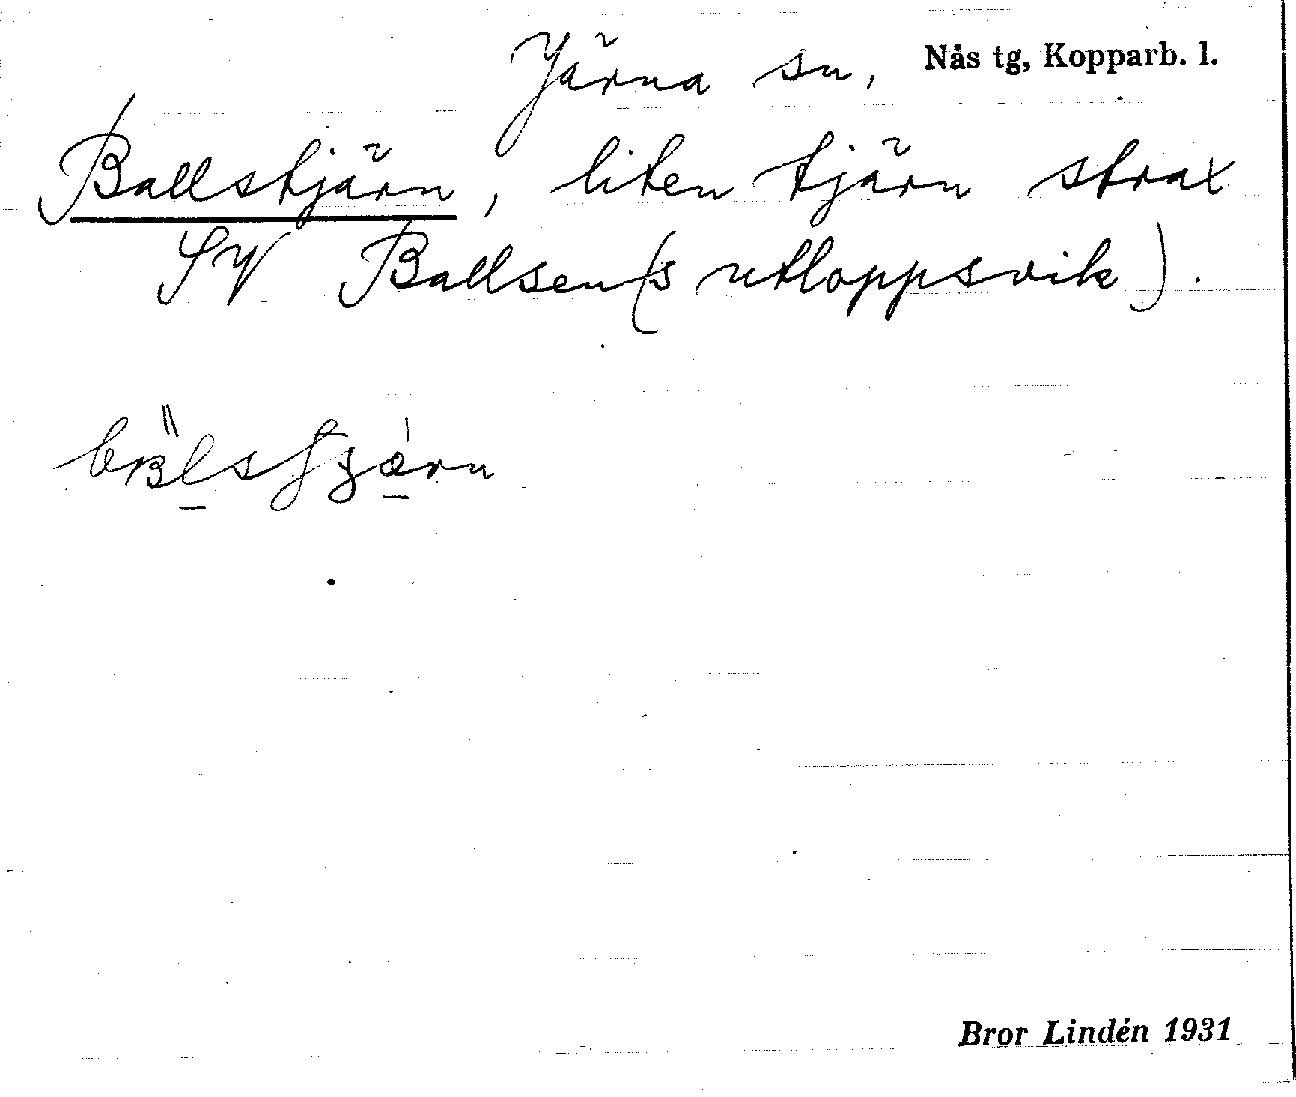 Järna sn, Nås tg, Kopparb. l.
Ballstjärn, liten tjärn strax
SV Ballsen(s utloppsvik).
Bror Lindén 1931